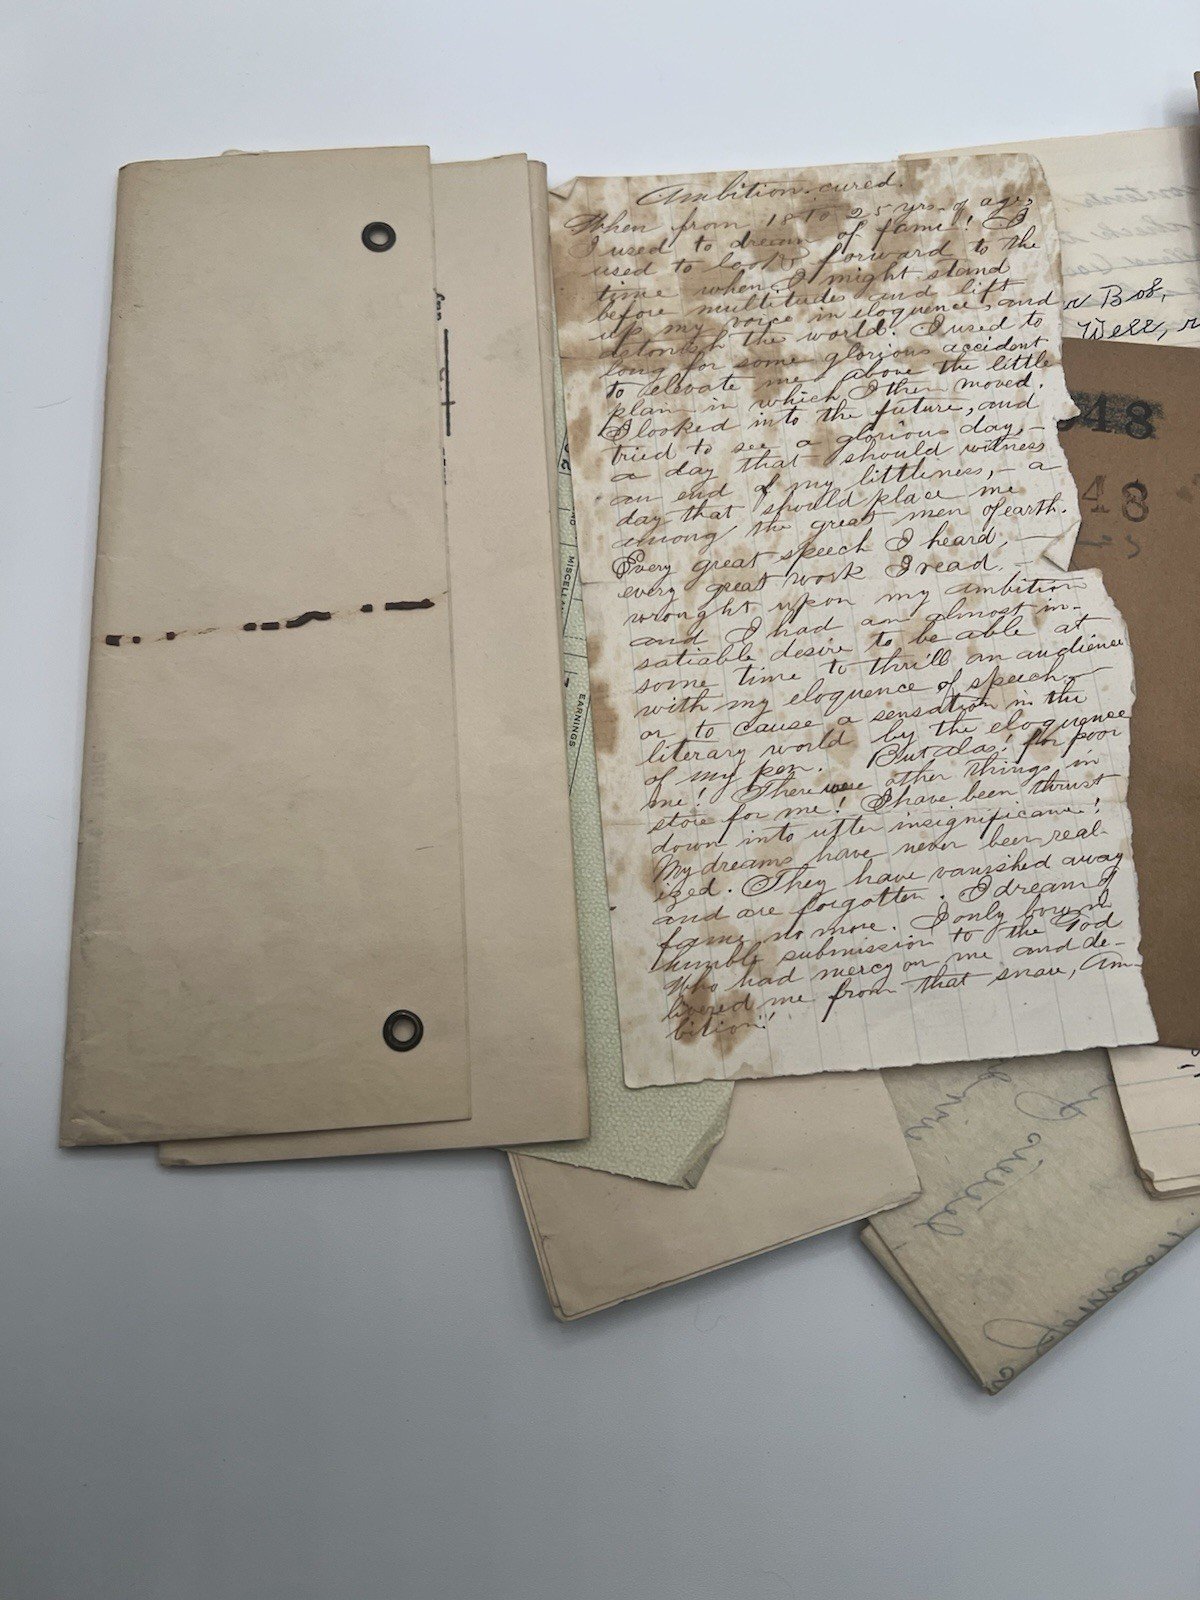 Ambition cured.
When from 18 to 25 yrs. of age,
I used to dream of fame! I
used to look forward to the
time when I might stand
before multitudes and lift
up my voice in eloquence, and
astonish the world. I used to
long for some glorious accident
to elevate me above the little
plain in which I then moved.
I looked into the future, and
tried to see a glorious day, –
a day that should witness
an end of my littleness, – a
day that should place me
among the great men of earth.
Every great speech I heard, —
every great work I read. –
wrought upon my ambition
and I had an almost in-
satiable desire to be able at
some time to thrill an audience
with my eloquence of speech –
or to cause a sensation in the
literary world by the eloquence
of my pen. But alas! for poor
me! There were other things in
store for me! I have been thrust
down into utter insignificance!
My dreams have never been real-
ized. They have vanished away
and are forgotten. I dream of
fame no more. I only bow in
humble submission to the God
Who had mercy on me and de-
livered me from that snare, Am-
bition!
MISCELL
EARNINGS
Bob,
Well,
48
48